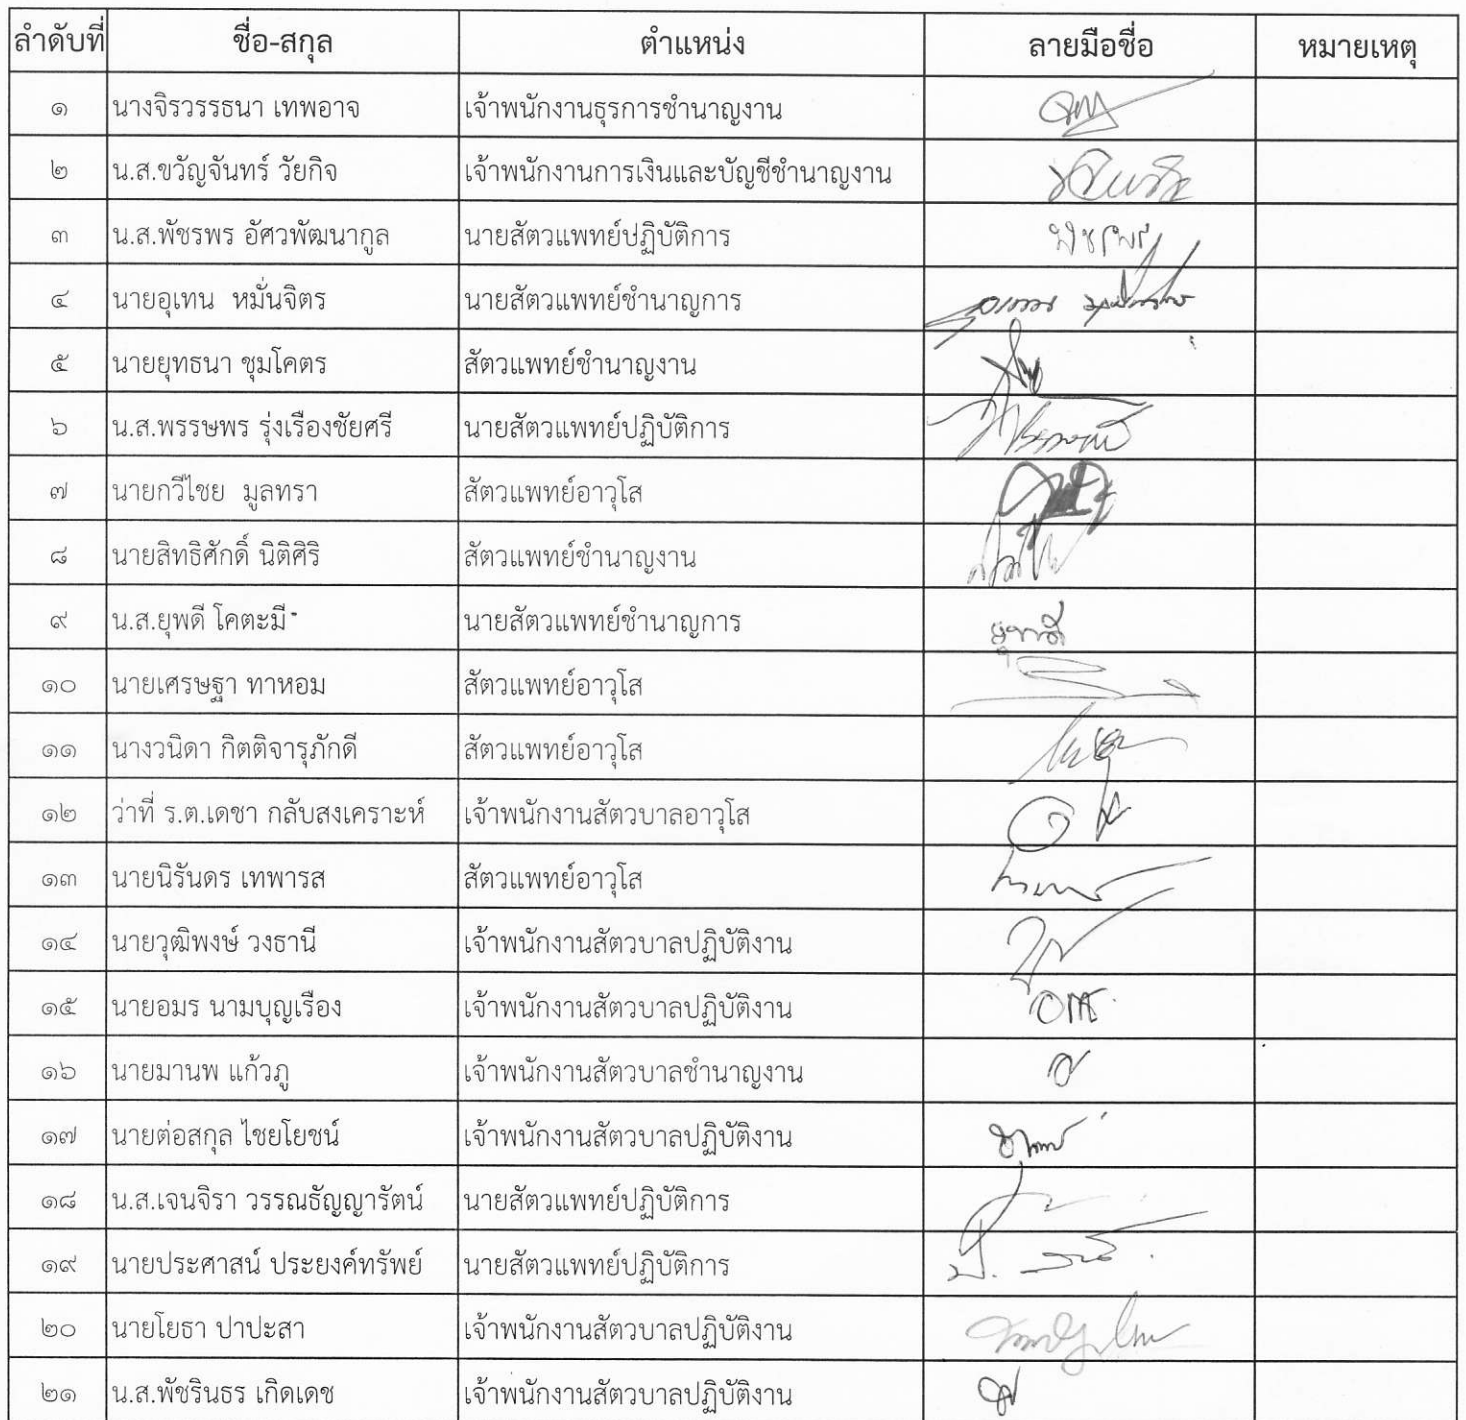 ลำดับที่ ชื่อ-สกุล ตำแหน่ง ลายมือชื่อ หมายเหตุ
๑ นางจิรวรรธนา เทพอาจ เจ้าพนักงานธุรการชำนาญงาน
๒ น.ส.ขวัญจันทร์ วัยกิจ เจ้าพนักงานการเงินและบัญชีชำนาญงาน
๓ น.ส.พัชรพร อัศวพัฒนากูล นายสัตวแพทย์ปฏิบัติการ พัชรพร
๔ นายอุเทน หมั่นจิตร นายสัตวแพทย์ชำนาญการ
๕ นายยุทธนา ชุมโคตร สัตวแพทย์ชำนาญงาน
๖ น.ส.พรรษพร รุ่งเรืองชัยศรี นายสัตวแพทย์ปฏิบัติการ
๗ นายกวีไชย มูลทรา สัตวแพทย์อาวุโส
๘ นายสิทธิศักดิ์ นิติศิริ สัตวแพทย์ชำนาญงาน
๙ น.ส.ยุพดี โคตะมี นายสัตวแพทย์ชำนาญการ ยุพดี
๑๐ นายเศรษฐา ทาหอม สัตวแพทย์อาวุโส
๑๑ นางวนิดา กิตติจารุภักดี สัตวแพทย์อาวุโส
๑๒ ว่าที่ ร.ต.เดชา กลับสงเคราะห์ เจ้าพนักงานสัตวบาลอาวุโส
๑๓ นายนิรันดร เทพารส สัตวแพทย์อาวุโส
๑๔ นายวุฒิพงษ์ วงธานี เจ้าพนักงานสัตวบาลปฏิบัติงาน
๑๕ นายอมร นามบุญเรือง เจ้าพนักงานสัตวบาลปฏิบัติงาน
๑๖ นายมานพ แก้วภู เจ้าพนักงานสัตวบาลชำนาญงาน
๑๗ นายต่อสกุล ไชยโยชน์ เจ้าพนักงานสัตวบาลปฏิบัติงาน
๑๘ น.ส.เจนจิรา วรรณธัญญารัตน์ นายสัตวแพทย์ปฏิบัติการ
๑๙ นายประศาสน์ ประยงค์ทรัพย์ นายสัตวแพทย์ปฏิบัติการ
๒๐ นายโยธา ปาปะสา เจ้าพนักงานสัตวบาลปฏิบัติงาน
๒๑ น.ส.พัชรินธร เกิดเดช เจ้าพนักงานสัตวบาลปฏิบัติงาน